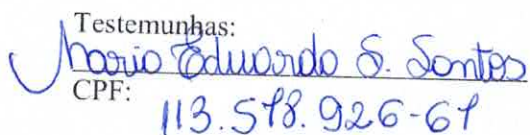 Testemunhas:
Mario Eduardo S. Santos
CPF:
113.578.926-61